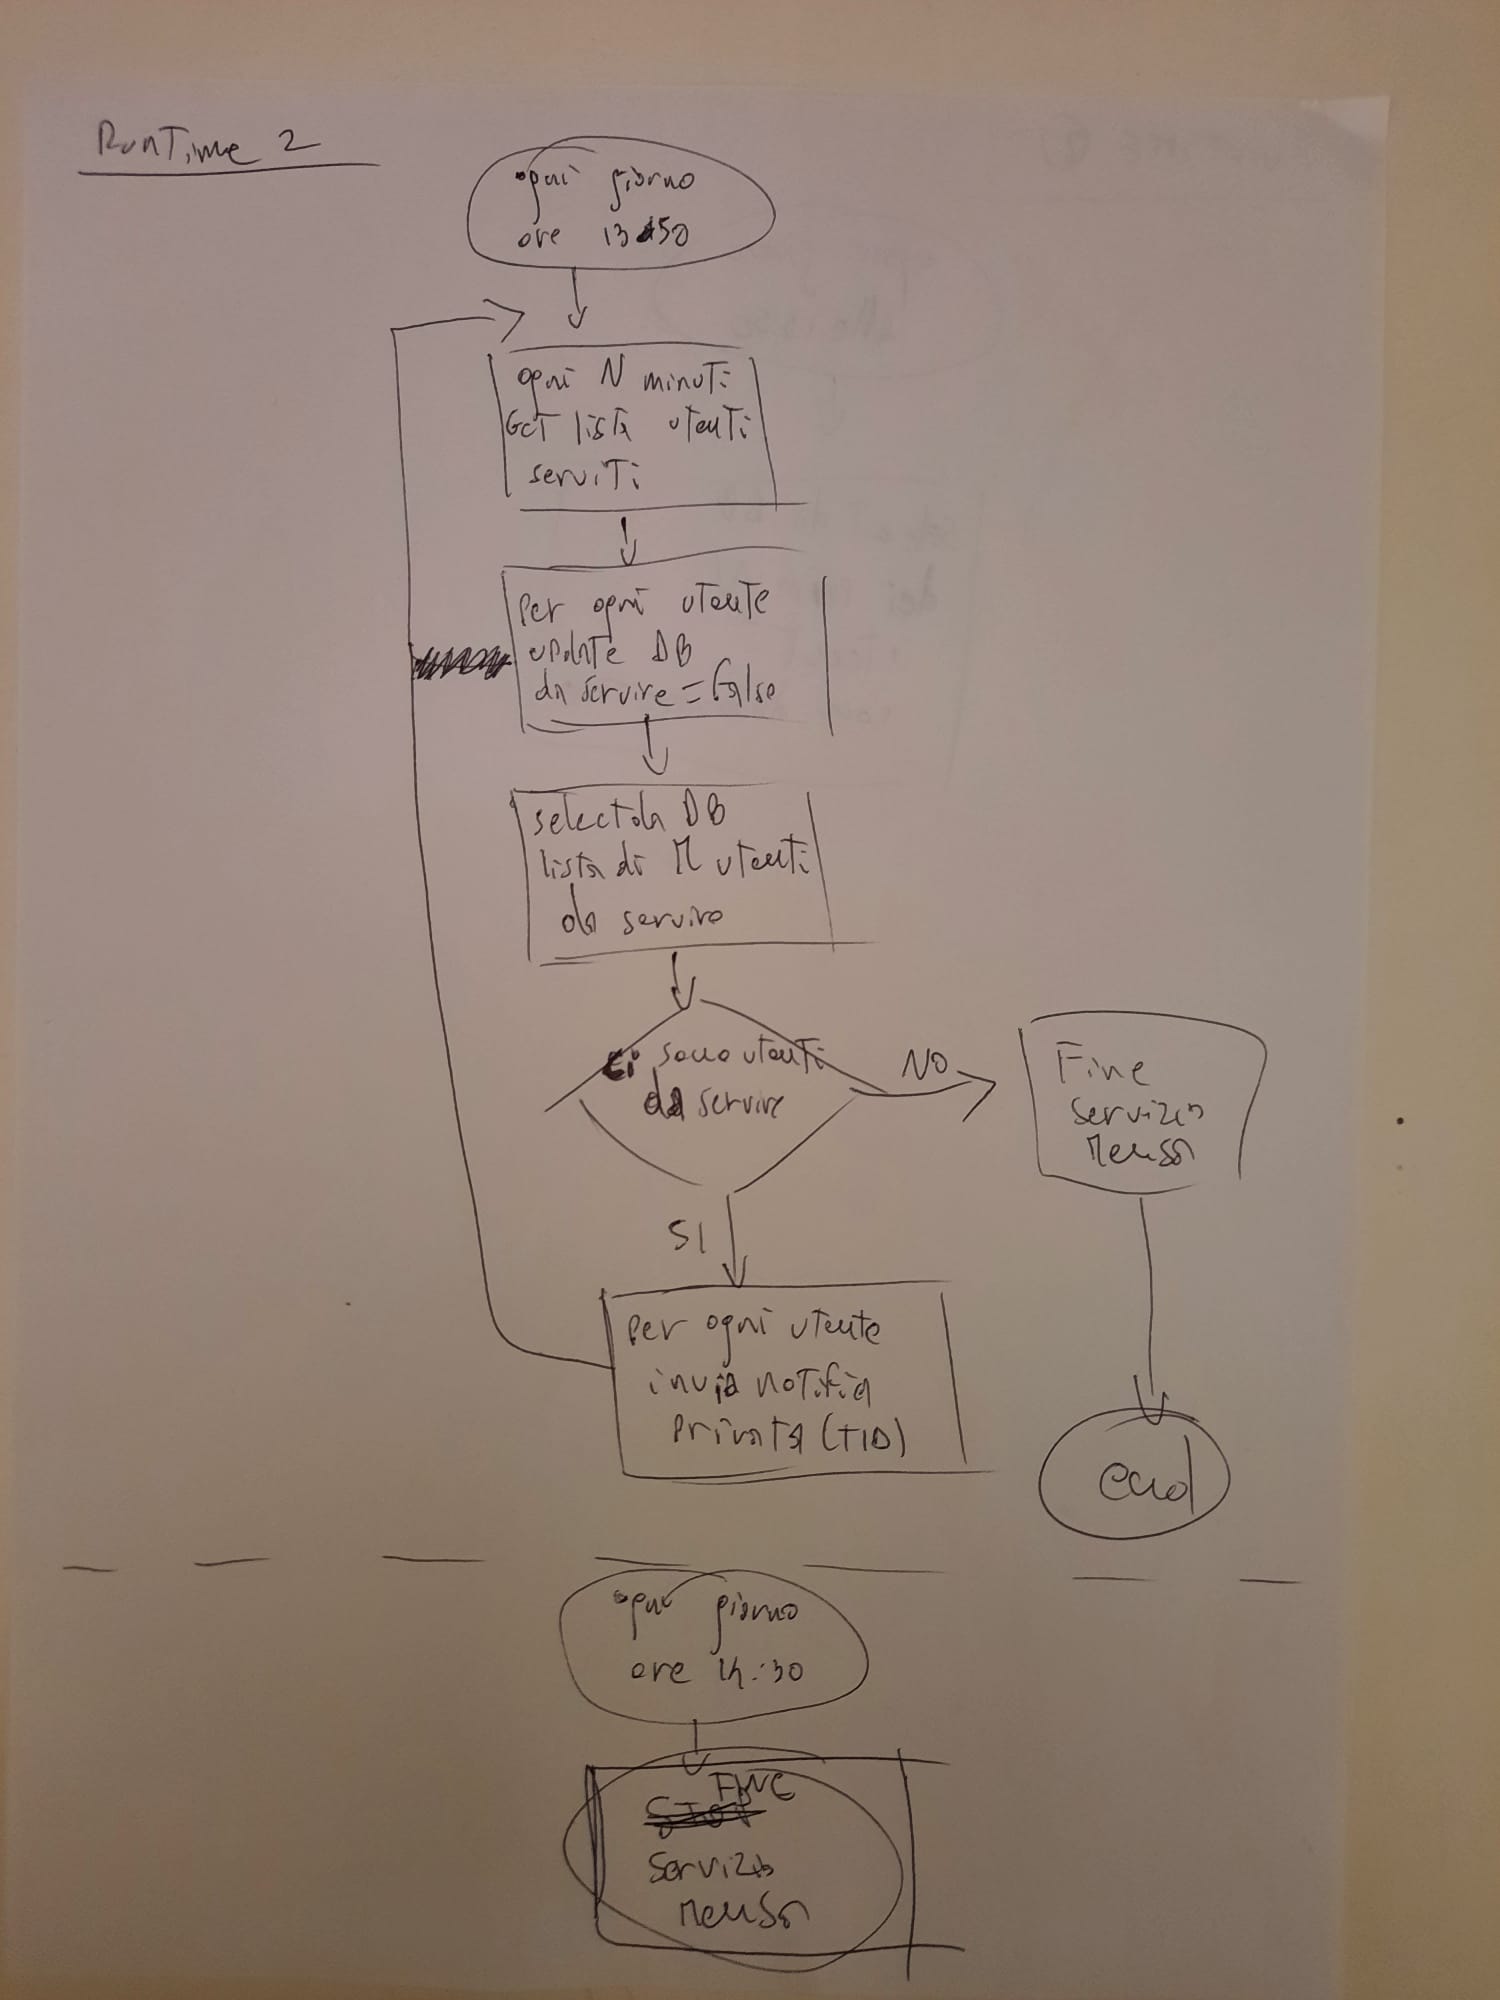 RunTime 2
ogni giorno
ore 13 50
ogni N minuti
GET lista utenti
serviti
Per ogni utente
update DB
da servire = False
select da DB
lista di M utenti
da servire
ci sono utenti
da servire
NO
Fine
servizio
Mensa
SI
Per ogni utente
invia notifica
Privata (TID)
end
ogni giorno
ore 14:30
FINE
servizio
Mensa